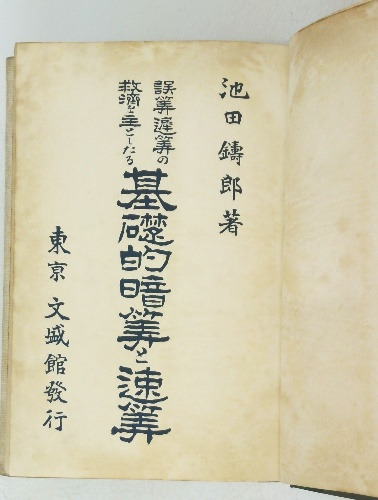 池田鑄郎著
誤筭遲筭の
救濟を主としたる
基礎的暗筭と速筭
東京 文盛館發行